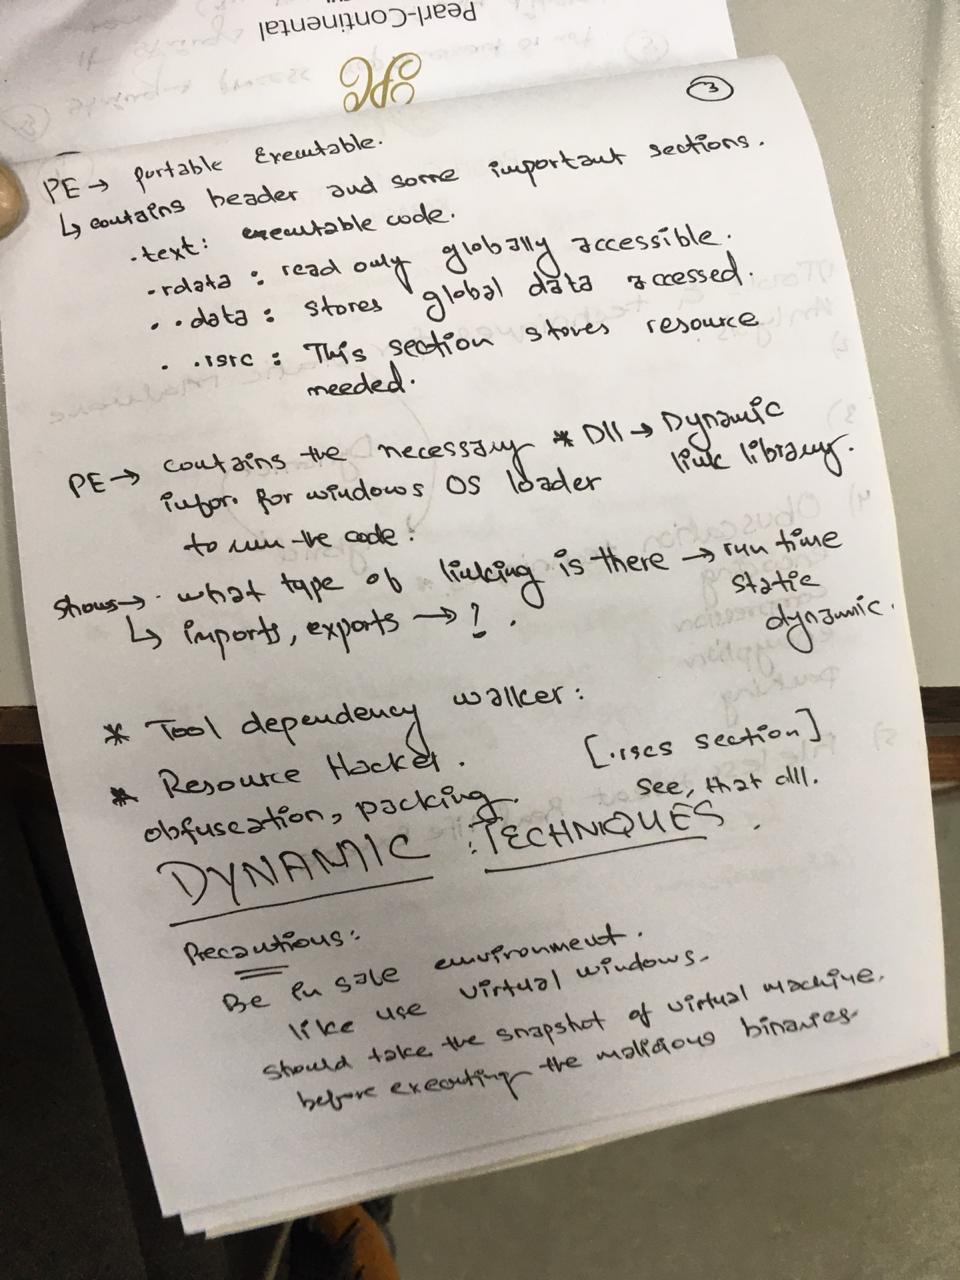 Pearl-Continental
3
PE → portable Executable.
↳ contains header and some important sections.
.text: executable code.
.rdata : read only globally accessible.
. .data : stores global data accessed.
. .rsrc : This section stores resource
needed.
PE → contains the necessary * Dll → Dynamic
infor. for windows OS loader link library.
to run the code :
shows → . what type of linking is there → run time
static
↳ imports, exports → ! . dynamic.
* Tool dependency walker :
* Resource Hacker . [.rscs section]
obfuscation, packing. see, that dll.
DYNAMIC : TECHNIQUES .
Precautions :
Be in safe environment .
like use virtual windows.
should take the snapshot of virtual machine.
before executing the malicious binaries.